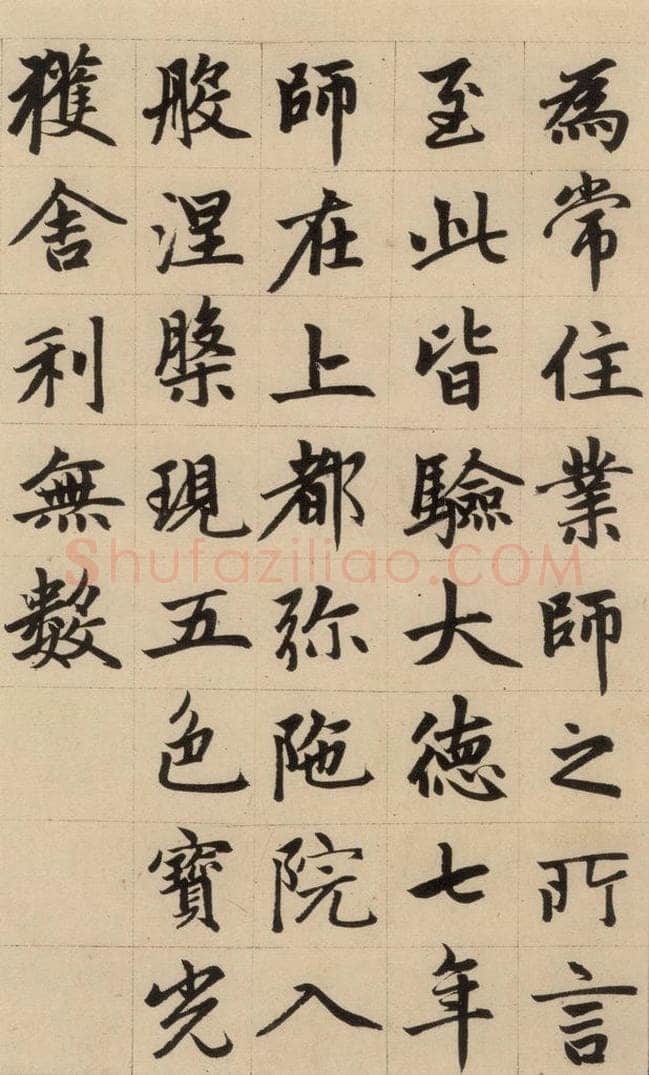 為常住業師之所言
至此皆驗大德七年
師在上都弥陁院入
般涅槃現五色寶光
獲舍利無數
Shufaziliao.COM